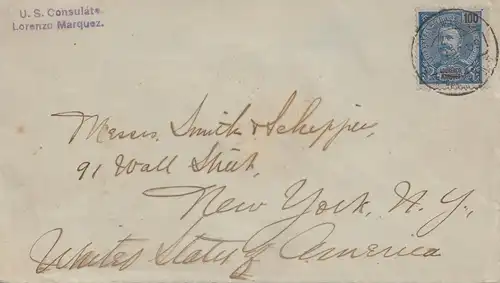 U. S. Consulate
Lorenzo Marquez.
100
Messrs. Smith & Schipper,
91 Wall Street,
New York, N. Y.,
United States of America